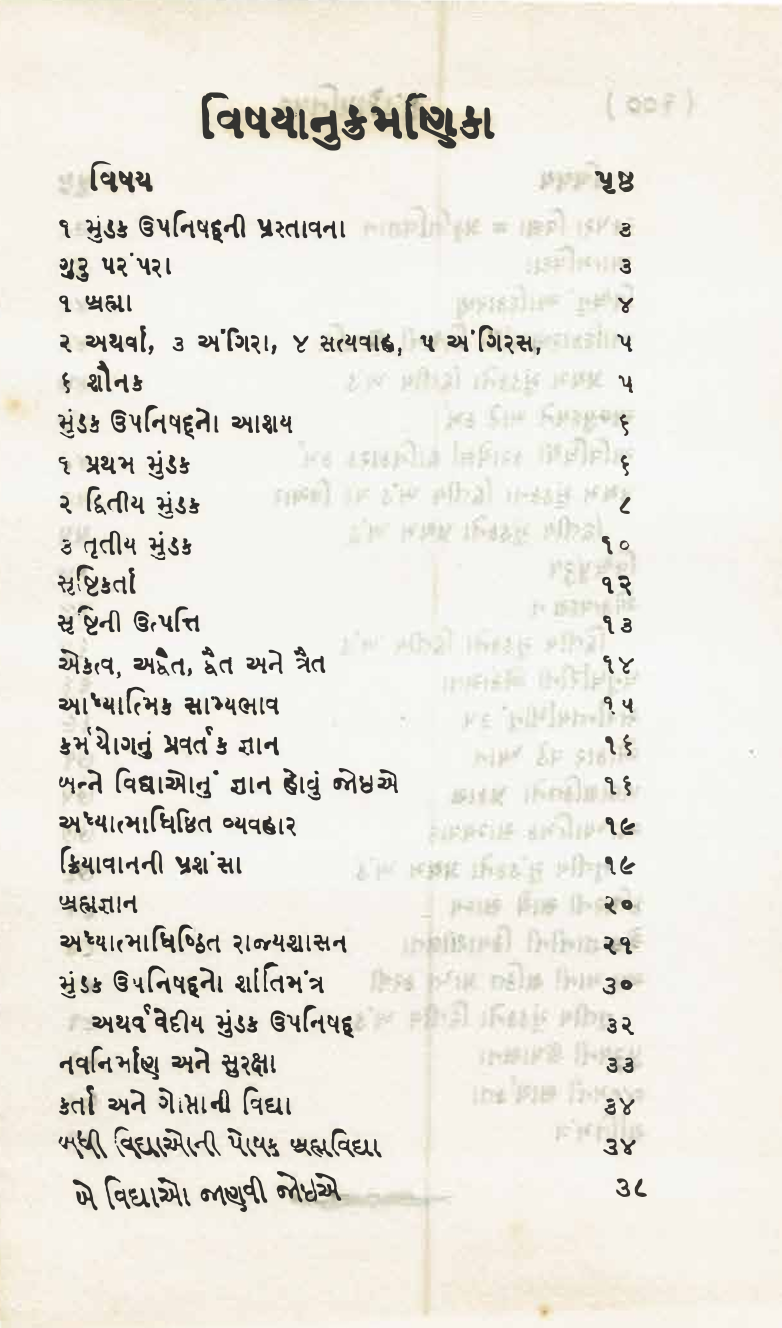 વિષયાનુક્રમણિકા
વિષય પૃષ્ઠ
૧ મુંડક ઉપનિષદ્‌ની પ્રસ્તાવના ૩
ગુરુ પરંપરા ૩
૧ બ્રહ્મા ૪
૨ અથર્વા, ૩ અંગિરા, ૪ સત્યવાહ, ૫ અંગિરસ, ૫
૬ શૌનક ૫
મુંડક ઉપનિષદ્‌નો આશય ૬
૧ પ્રથમ મુંડક ૬
૨ દ્વિતીય મુંડક ૮
૩ તૃતીય મુંડક ૧૦
સૃષ્ટિકર્તા ૧૨
સૃષ્ટિની ઉત્પત્તિ ૧૩
એકત્વ, અદ્વૈત, દ્વૈત અને ત્રૈત ૧૪
આધ્યાત્મિક સામ્યભાવ ૧૫
કર્મયોગનું પ્રવર્તક જ્ઞાન ૧૬
બન્ને વિદ્યાઓનું જ્ઞાન હોવું જોઇએ ૧૬
અધ્યાત્માધિષ્ઠિત વ્યવહાર ૧૯
ક્રિયાવાનની પ્રશંસા ૧૯
બ્રહ્મજ્ઞાન ૨૦
અધ્યાત્માધિષ્ઠિત રાજ્યશાસન ૨૧
મુંડક ઉપનિષદ્‌નો શાંતિમંત્ર ૩૦
અથર્વવેદીય મુંડક ઉપનિષદ્ ૩૨
નવનિર્માણ અને સુરક્ષા ૩૩
કર્તા અને ગોપ્તાની વિદ્યા ૩૪
બધી વિદ્યાઓની પોષક બ્રહ્મવિદ્યા ૩૪
બે વિદ્યાઓ જાણવી જોઇએ ૩૮